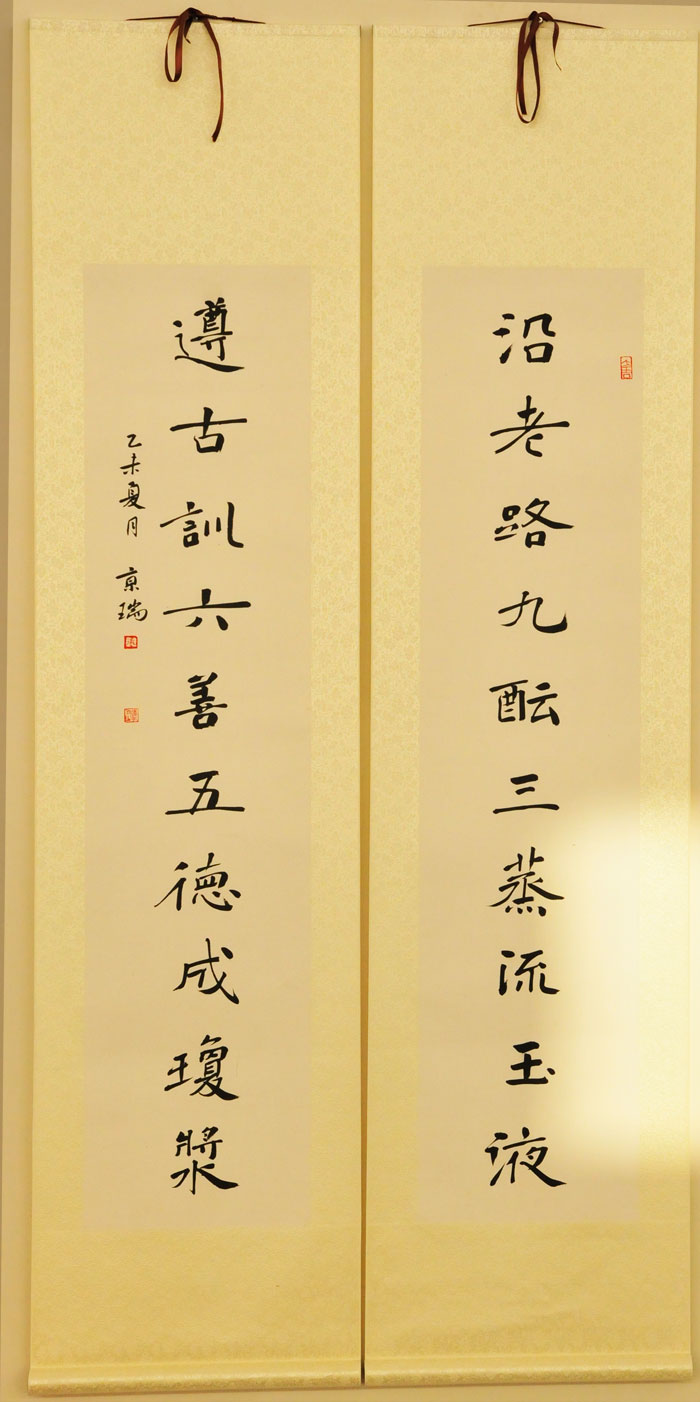 沿老路九酝三蒸流玉液
遵古訓六善五德成瓊漿
乙未夏月 京瑞